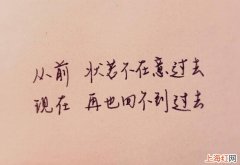 从前 状若不在意过去
现在 再也回不到过去
上海灯网